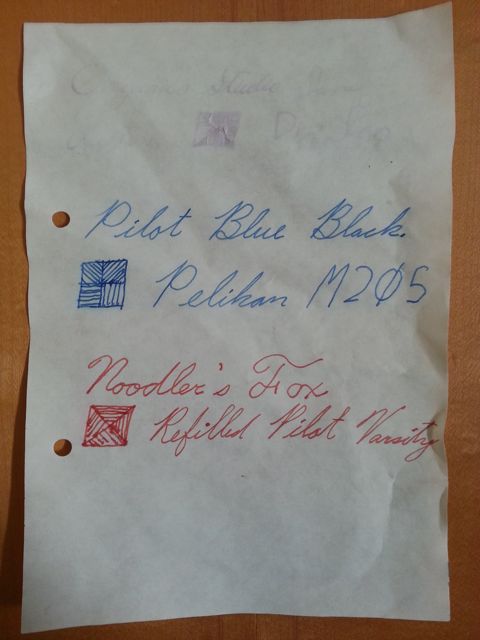 Studio
Pilot Blue Black.
Pelikan M2Ø5
Noodler's Fox
Refilled Pilot Varsity